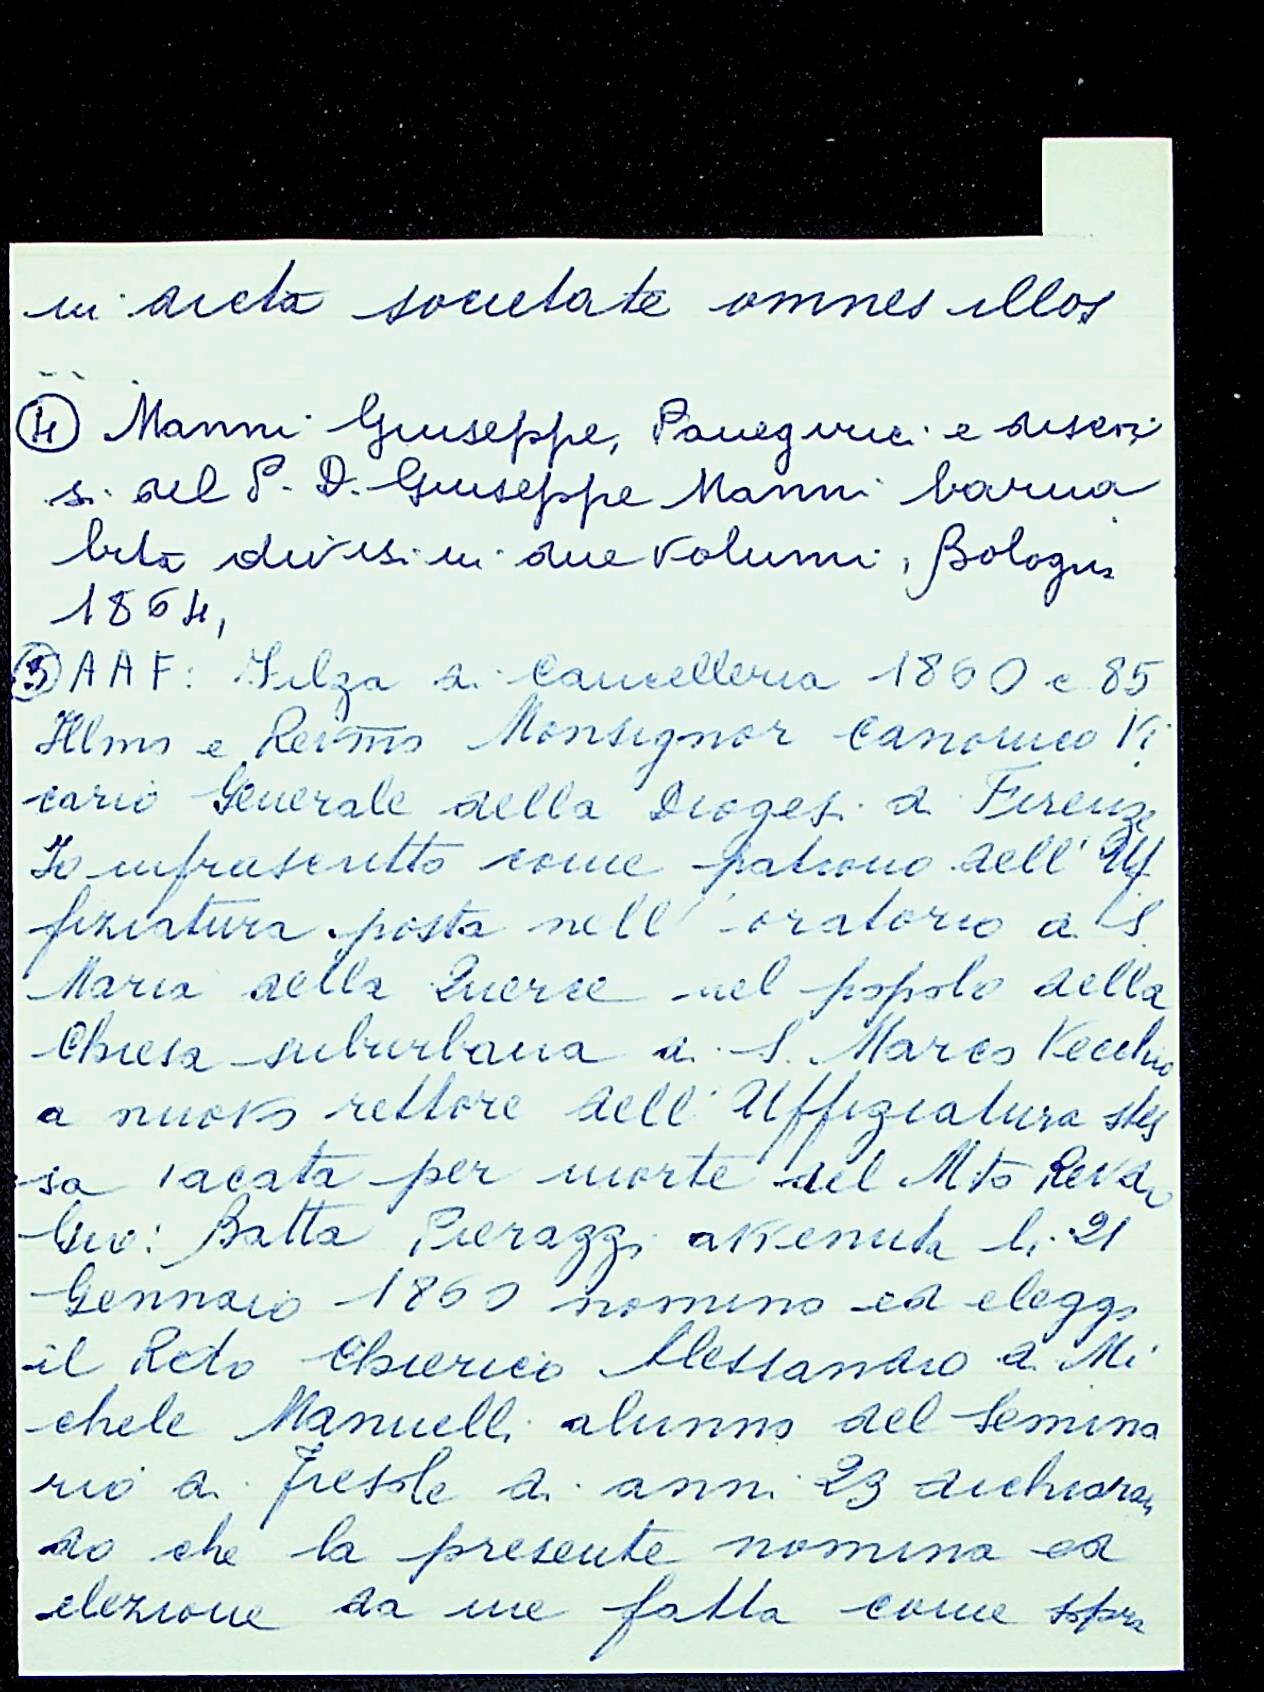 in dicta societate omnes illos
④ Manni Giuseppe, Panegirici e discor
si del P. D. Giuseppe Manni barna
bita divisi in due volumi, Bologna
1864,
⑤ AAF: Filza di Cancelleria 1860 c 85
Illmo e Revmo Monsignor Canonico Vi
cario Generale della Diogesi di Firenze
Io infrascritto come patrono dell' Uf
fiziatura posta nell' oratorio di S.
Maria della Querce nel popolo della
Chiesa suburbana di S. Marco Vecchio
a nuovo rettore dell' Uffiziatura stes
sa vacata per morte del Mto Revdo
Gio: Batta Pierazzi avvenuta li 21
Gennaio 1860 nomino ed eleggo
il Redo Chierico Alessandro di Mi
chele Manuelli alunno del Semina
rio di Fiesole di anni 23 dichiaran
do che la presente nomina ed
elezione da me fatta come sopra